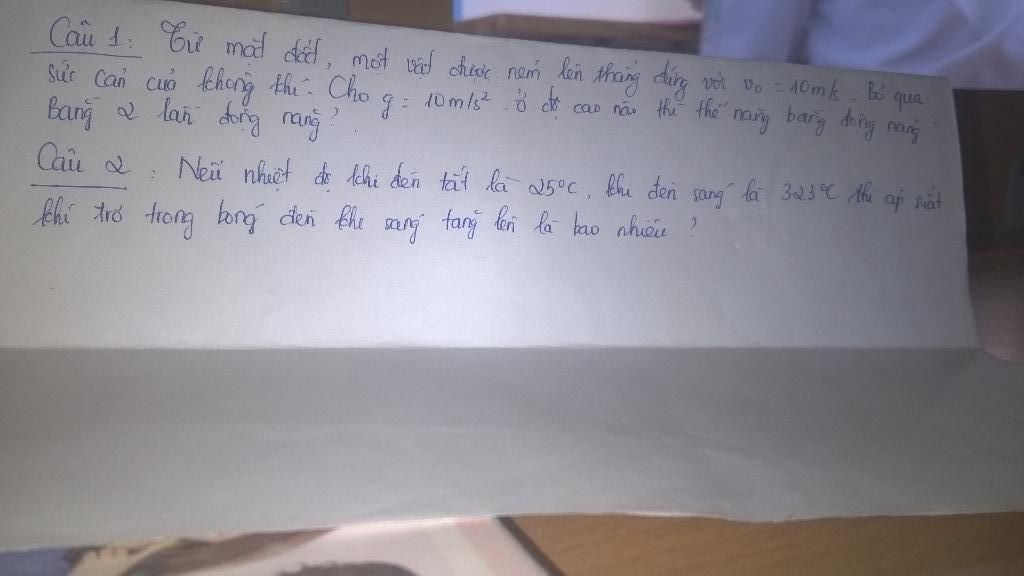 Câu 1: Từ mặt đất, một vật được ném lên thẳng đứng với v₀ = 10m/s. Bỏ qua
sức cản của không khí. Cho g = 10m/s². ở độ cao nào thì thế năng bằng động năng?
Bằng 2 lần động năng?
Câu 2: Nếu nhiệt độ khi đèn tắt là 25°C, khi đèn sáng là 323°C thì áp suất
khí trơ trong bóng đèn khi sáng tăng lên là bao nhiêu?